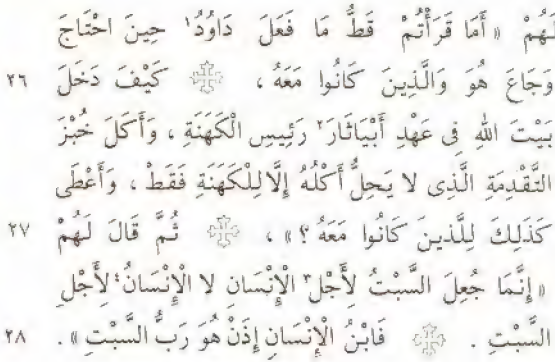 لَهُمْ «أَمَا قَرَأْتُمْ قَطُّ مَا فَعَلَ دَاوُدُ١ حِينَ احْتَاجَ
وَجَاعَ هُوَ وَالَّذِينَ كَانُوا مَعَهُ ، كَيْفَ دَخَلَ ٢٦
بَيْتَ اللهِ فِى عَهْدِ أَبْيَاثَارَ٢ رَئِيسِ الْكَهَنَةِ ، وَأَكَلَ خُبْزَ
التَّقْدِمَةِ الَّذِى لا يَحِلُّ أَكْلُهُ إِلَّا لِلْكَهَنَةِ فَقَطْ ، وَأَعْطَى
كَذَلِكَ لِلَّذِينَ كَانُوا مَعَهُ ؟» ، ثُمَّ قَالَ لَهُمْ ٢٧
«إِنَّمَا جُعِلَ السَّبْتُ لِأَجْلِ٣ الْإِنْسَانِ لا الْإِنْسَانُ٤ لِأَجْلِ
السَّبْتِ . فَابْنُ الْإِنْسَانِ إِذَنْ هُوَ رَبُّ السَّبْتِ» . ٢٨